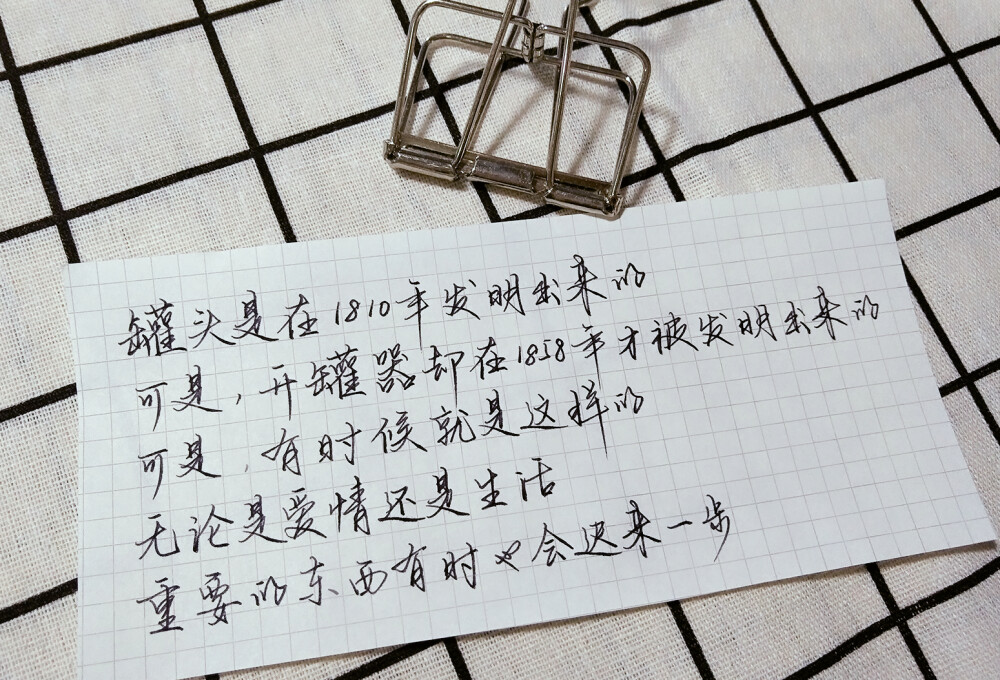 罐头是在1810年发明出来的
可是，开罐器却在1858年才被发明出来的
可是，有时候就是这样的
无论是爱情还是生活
重要的东西有时也会迟来一步